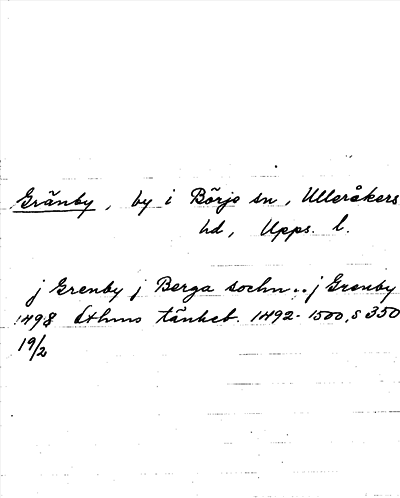 Gränby, by i Börje sn, Ulleråkers
hd, Upps. l.
j Grenby j Berga sochn .. j Grenby
1498 Sthms tänkeb. 1492-1500, s 350
19/2